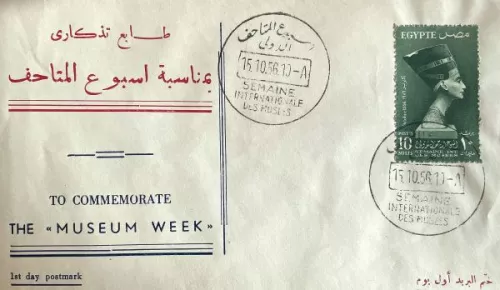 طابع تذكارى
بمناسبة اسبوع المتاحف
TO COMMEMORATE
THE «MUSEUM WEEK»
1st day postmark
اسبوع المتاحف
الدولى
15.10.56.10-A
SEMAINE
INTERNATIONALE
DES MUSEES
EGYPTE مصر
10
MILLS
١٠
15.10.56.10-A
SEMAINE
INTERNATIONALE
DES MUSEES
ختم البريد أول يوم